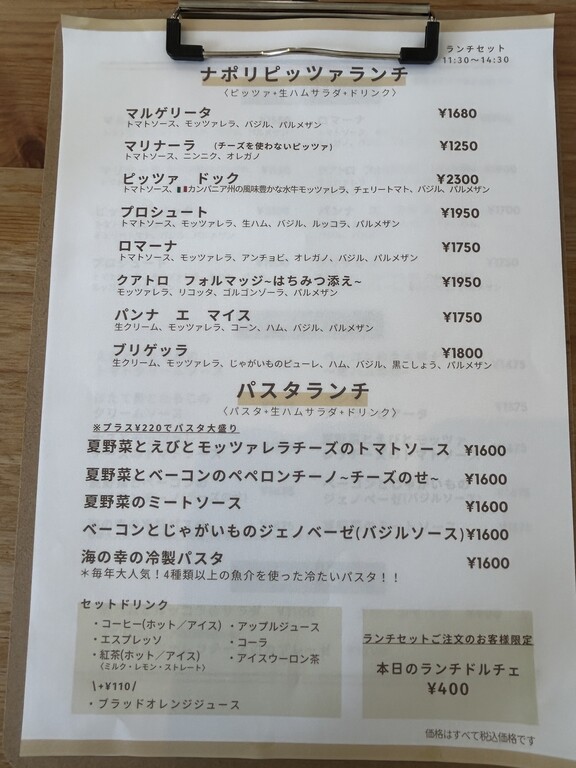 ランチセット
11:30〜14:30
ナポリピッツァランチ
〈ピッツァ+生ハムサラダ+ドリンク〉
マルゲリータ ¥1680
トマトソース、モッツァレラ、バジル、パルメザン
マリナーラ (チーズを使わないピッツァ) ¥1250
トマトソース、ニンニク、オレガノ
ピッツァ ドック ¥2300
トマトソース、カンパニア州の風味豊かな水牛モッツァレラ、チェリートマト、バジル、パルメザン
プロシュート ¥1950
トマトソース、モッツァレラ、生ハム、バジル、ルッコラ、パルメザン
ロマーナ ¥1750
トマトソース、モッツァレラ、アンチョビ、オレガノ、バジル、パルメザン
クアトロ フォルマッジ~はちみつ添え~ ¥1950
モッツァレラ、リコッタ、ゴルゴンゾーラ、パルメザン
パンナ エ マイス ¥1750
生クリーム、モッツァレラ、コーン、ハム、バジル、パルメザン
ブリゲッラ ¥1800
生クリーム、モッツァレラ、じゃがいものピューレ、ハム、バジル、黒こしょう、パルメザン
パスタランチ
〈パスタ+生ハムサラダ+ドリンク〉
※プラス¥220でパスタ大盛り
夏野菜とえびとモッツァレラチーズのトマトソース ¥1600
夏野菜とベーコンのペペロンチーノ~チーズのせ~ ¥1600
夏野菜のミートソース ¥1600
ベーコンとじゃがいものジェノベーゼ(バジルソース) ¥1600
海の幸の冷製パスタ ¥1600
＊毎年大人気！4種類以上の魚介を使った冷たいパスタ！！
セットドリンク
・コーヒー(ホット／アイス)
・エスプレッソ
・紅茶(ホット／アイス)
〈ミルク・レモン・ストレート〉
・アップルジュース
・コーラ
・アイスウーロン茶
\+¥110/
・ブラッドオレンジジュース
ランチセットご注文のお客様限定
本日のランチドルチェ
¥400
価格はすべて税込価格です